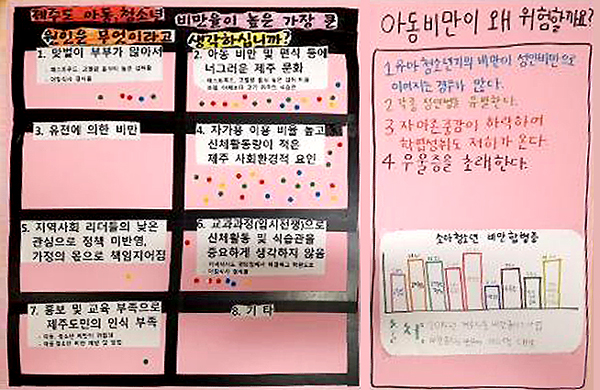 제주도 아동·청소년 비만율이 높은 가장 큰
원인을 무엇이라고 생각하십니까?
1. 맞벌이 부부가 많아서
2. 아동 비만 및 편식 등에
너그러운 제주 문화
3. 유전에 의한 비만
4. 자가용 이용 비율 높고
신체활동량이 적은
제주 사회환경적 요인
5. 지역사회 리더들의 낮은
관심으로 정책 미반영,
가정의 몫으로 책임지어짐
6. 교과과정(입시전쟁)으로
신체활동 및 식습관을
중요하게 생각하지 않음
7. 홍보 및 교육 부족으로
제주도민의 인식 부족
8. 기타
아동비만이 왜 위험할까요?
1 유아청소년기의 비만이 성인비만으로
이어지는 경우가 많다.
2 각종 성인병을 유발한다.
3 자아존중감이 하락하여
학업성취도 저하가 온다.
4 우울증을 초래한다.
소아청소년 비만 합병증